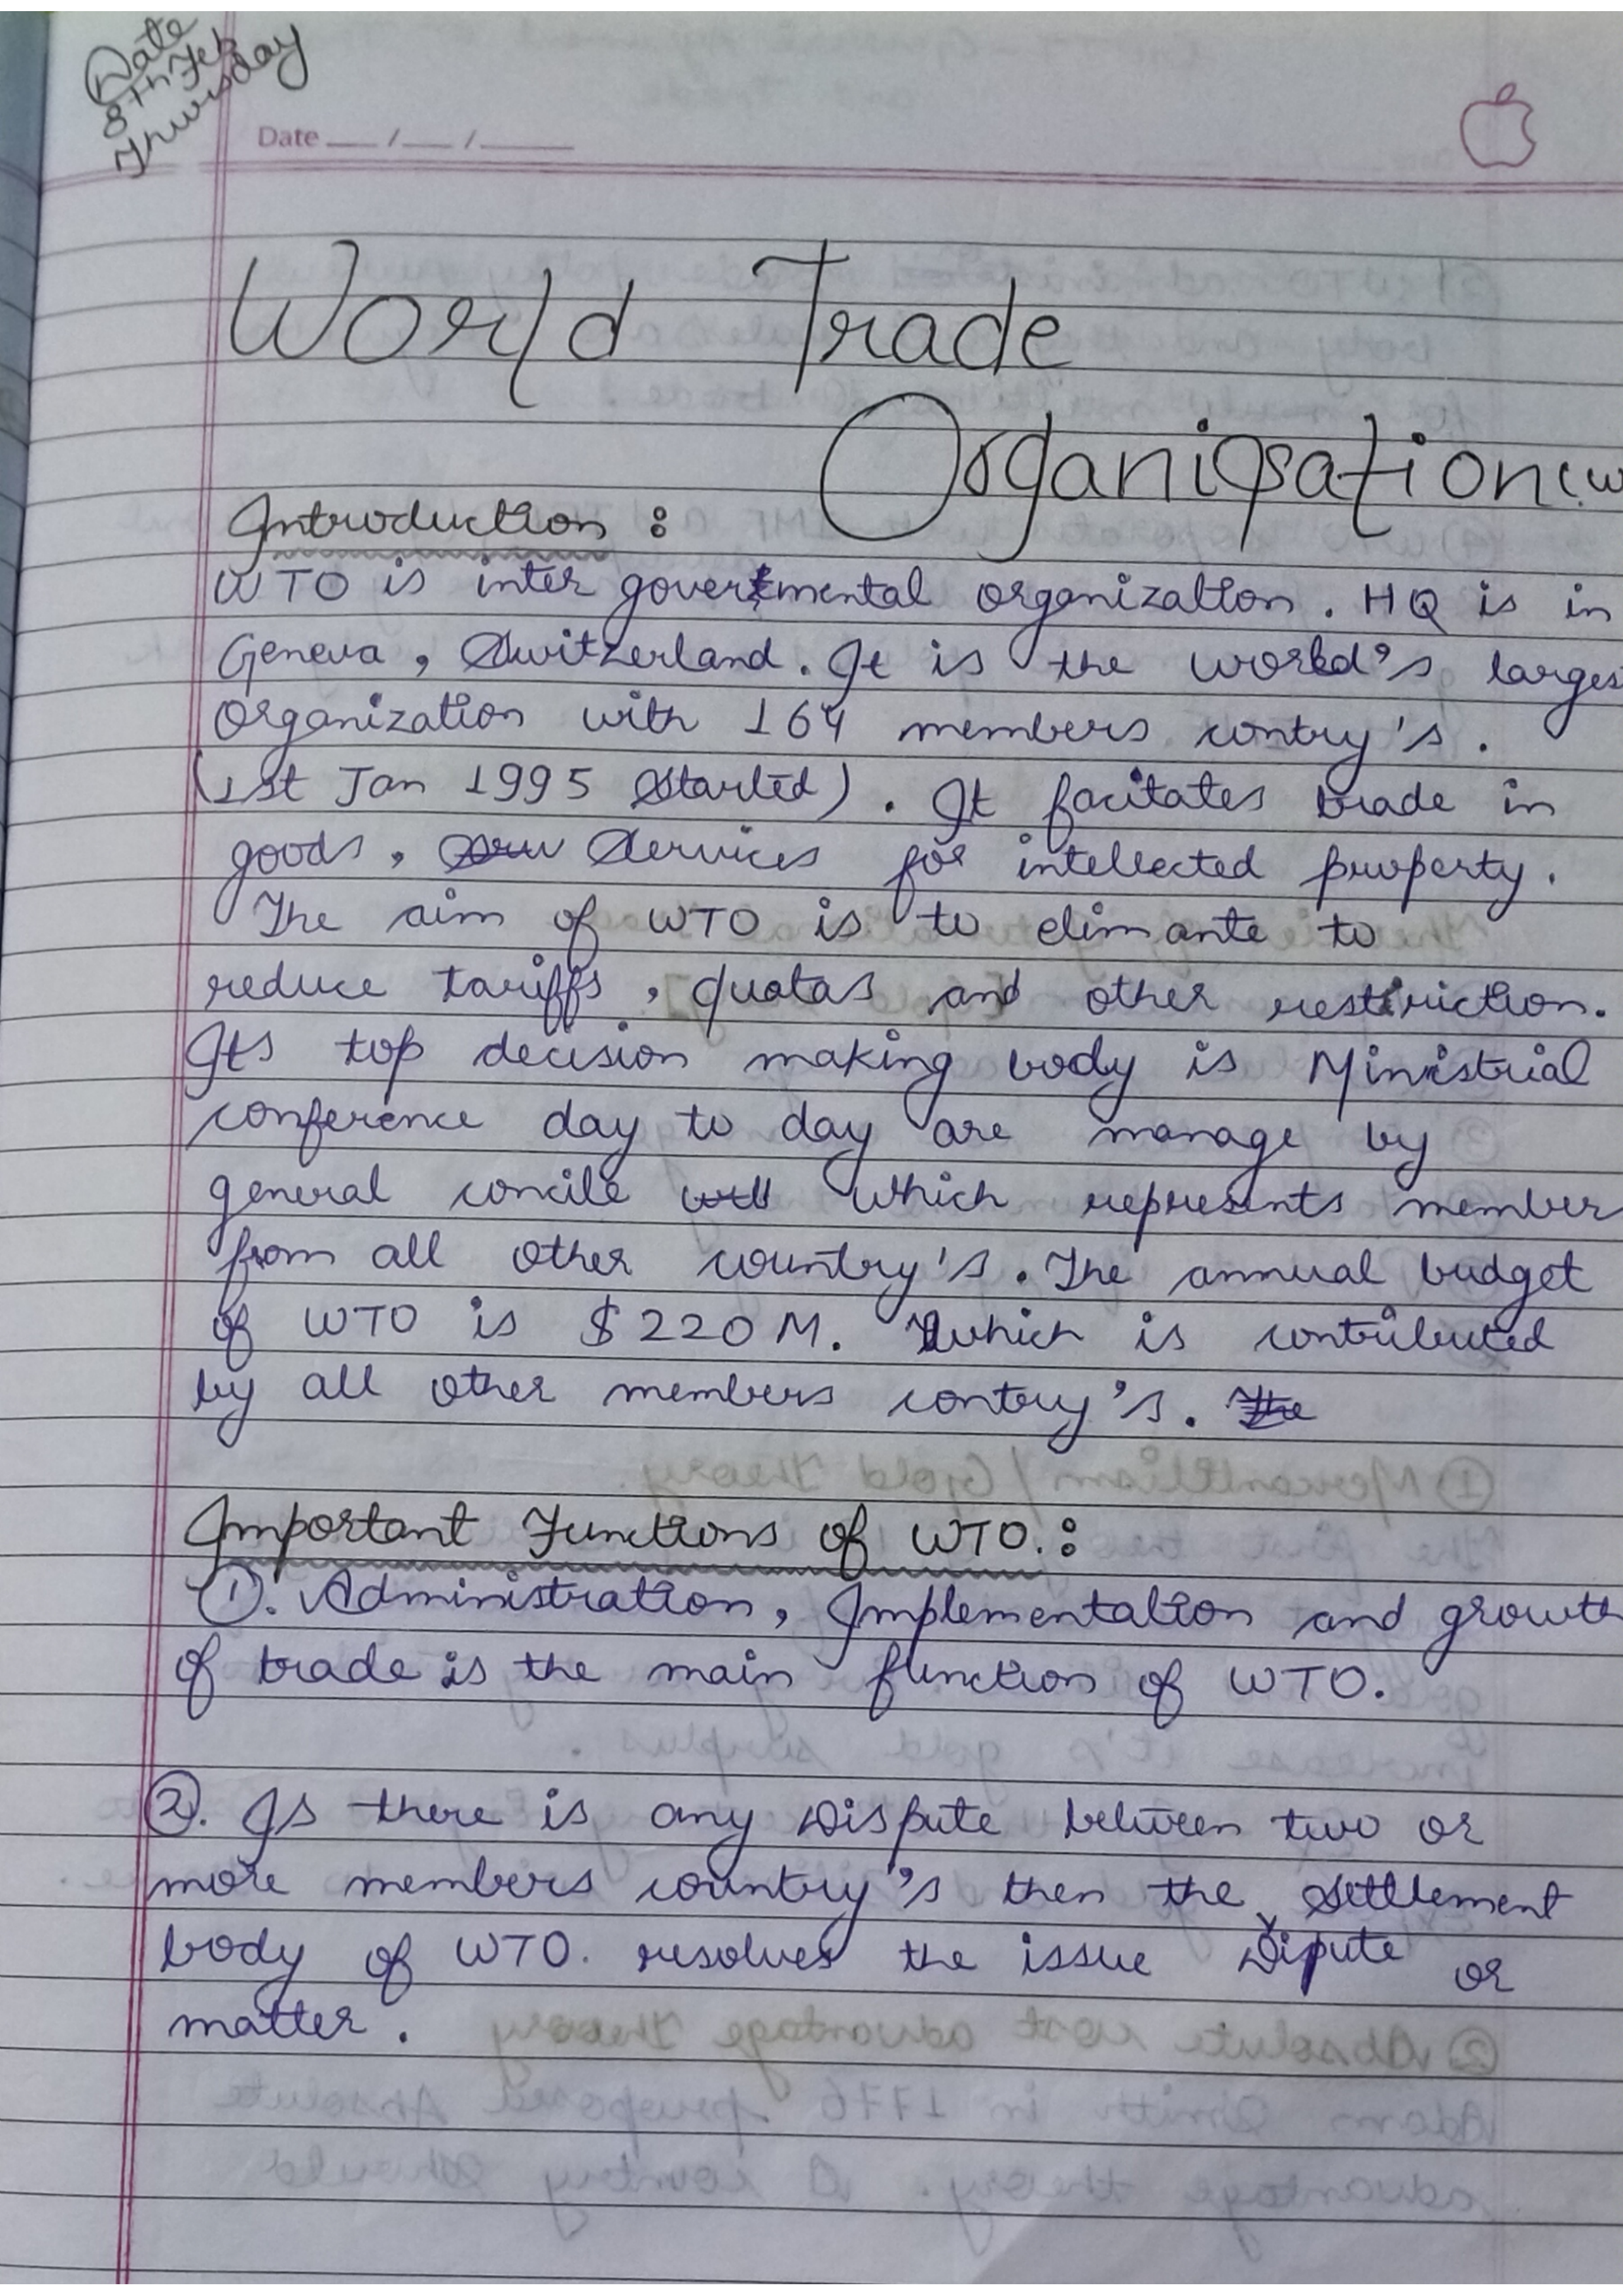 Date
8th Feb
Thursday
Date __ / __ / ____
World Trade
Organisation (W
Introduction :
WTO is inter govermental organization. HQ is in
Geneva, Switzerland. It is the world's larges
Organization with 164 members contry's.
(1st Jan 1995 Started). It facitates trade in
goods, Services for intellected property.
The aim of WTO is to elimante to
reduce tariffs, quotas and other restriction.
Its top decision making body is Ministrial
conference day to day are manage by
general concile which represents member
from all other country's. The annual budget
of WTO is $220M. Which is contributed
by all other members contry's. The
Important Functions of WTO.:
①. Administration, Implementation and growth
of trade is the main function of WTO.
②. Is there is any Dispute between two or
more members country's then the Settlement
body of WTO. resolves the issue Dipute or
matter.